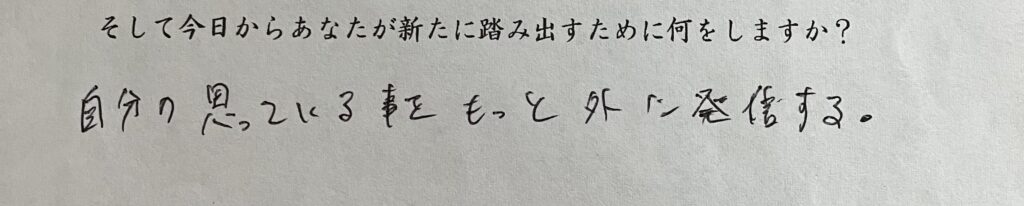 そして今日からあなたが新たに踏み出すために何をしますか？
自分の思っている事をもっと外に発信する。